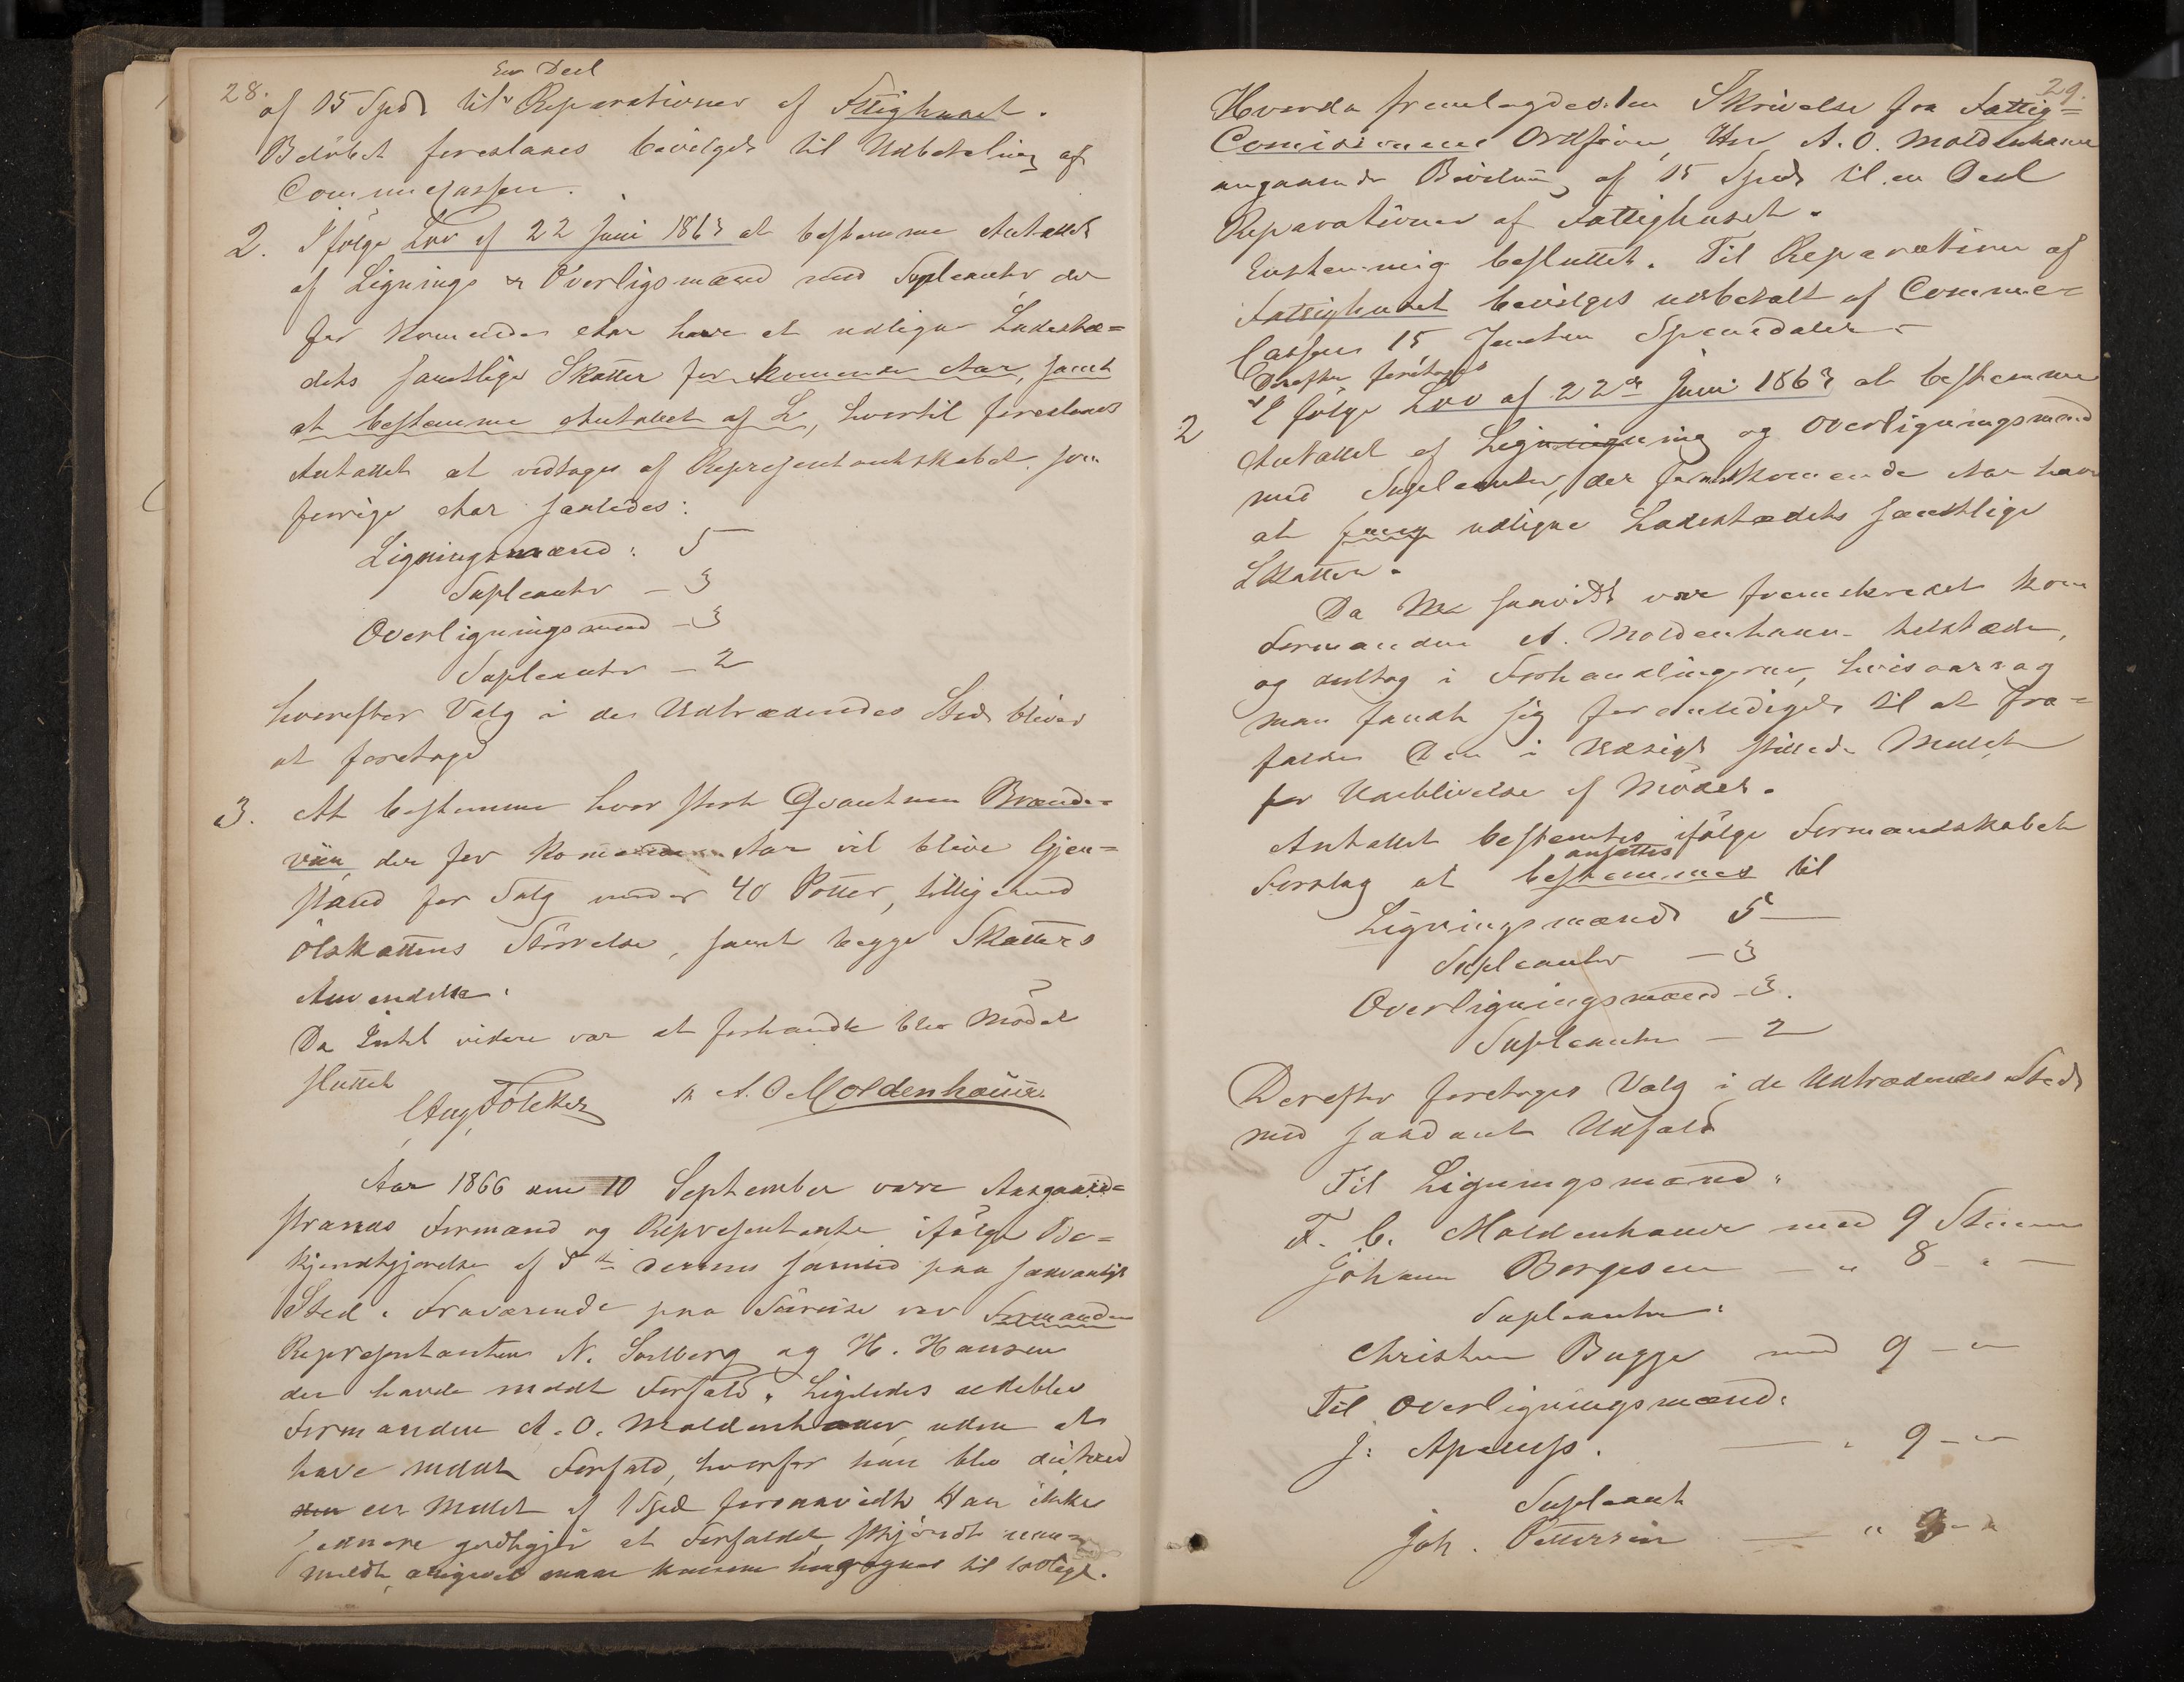 28.
En Deel
af 15 Spd til Reparationer af Fttighuset.
Beløbet foreslaaes bevilget til Udbetaling af
Communecassen.
2. Ifølge Lov af 22 Juni 1863 at bestemme Antallet
af Lignings & Overligsmænd med Supleanter, der
for kommende Aar have at udligne Ladestæ=
dets samtlige Skatter for kommende Aar, samt
at bestemme Antallet af L, hvortil foreslaaes
Antallet at vedtages af Representantskabet som
forrige Aar saaledes:
Ligningsmænd: 5
Supleanter – 3
Overligningsmænd – 3
Supleanter – 2
hvorefter Valg i de Udtrædendes Sted bliver
at foretage
3. At bestemme hvor stort Qvantum Brænde=
viin der for kommende Aar vil blive Gjen=
stand for Salg under 40 Potter, tilligemed
Ølskattens Størrelse, samt begge Skatters
Anvendelse.
Da Intet videre var at forhandle blev Mødet
sluttet
A. O Moldenhauer
Aar 1866 den 10 September vare Aasgaard=
strands Formænd og Representanter ifølge Be=
kjendtgjørelse af 5te dennes samled paa sædvanligt
Sted. Fraværende paa Søreise var Formanden
Representanten N. Solberg og H. Hansen
der havde meldt Forfald. Ligeledes udeblev
Formanden A. O. Moldenhauer uden at
have meldt Forfald, hvorfor han blev dicteret
en Mulct af 1 Spd forsaavidt Han ikke
senere godtgjør at Forfaldet skjøndt uan=
meldt, alligevel maa kunne henregnes til lovligt.
29.
Hvorda fremlagdes en Skrivelse fra Fattig=
Comisionens Ordfører, Hr A. O. Moldenhauer
angaaende Bevilning af 15 Spd til en Deel
Reparationer af Fattighuset.
Enstemmig besluttet. Til Reparation af
Fattighuset bevilges udbetalt af Commune=
Cassen 15 Femten Speciedaler –
Derefter foretages
2 Ifølge Lov af 22de Juni 1863 at bestemme
Antallet af Ligningning og Overligningsmænd
med Supleanter, der for kommende Aar have
at udligne Ladestædets samtlige
Skatter.
Da Man saavidt var fremskredet kom
Formanden A. Moldenhauer tilstæde,
og deltog i Forhandlingerne, hvis aarsag
man fandt sig foranlediget til at fra=
falde Den i Udsigt stillede Mulct
for Udeblivelse af Mødet.
Antallet bestemtes ifølge Formandskabets
ansættes
Forslag at bestemmes til
Ligningsmænd 5 –
Supleanter – 3
Overligningsmænd – 3.
Supleanter – 2
Derefter foretages Valg i de Udtrædendes Sted
med saadant Udfald
Til Ligningsmænd:
F. C. Moldenhauer med 9 Stemmer
Johan Borgesen – " 8 – " –
Supleanter:
Christen Bugge med 9 – "
Til Overligningsmænd:
J: Apenæs. – " 9 – "
Supleant
Joh. Pettersen – "